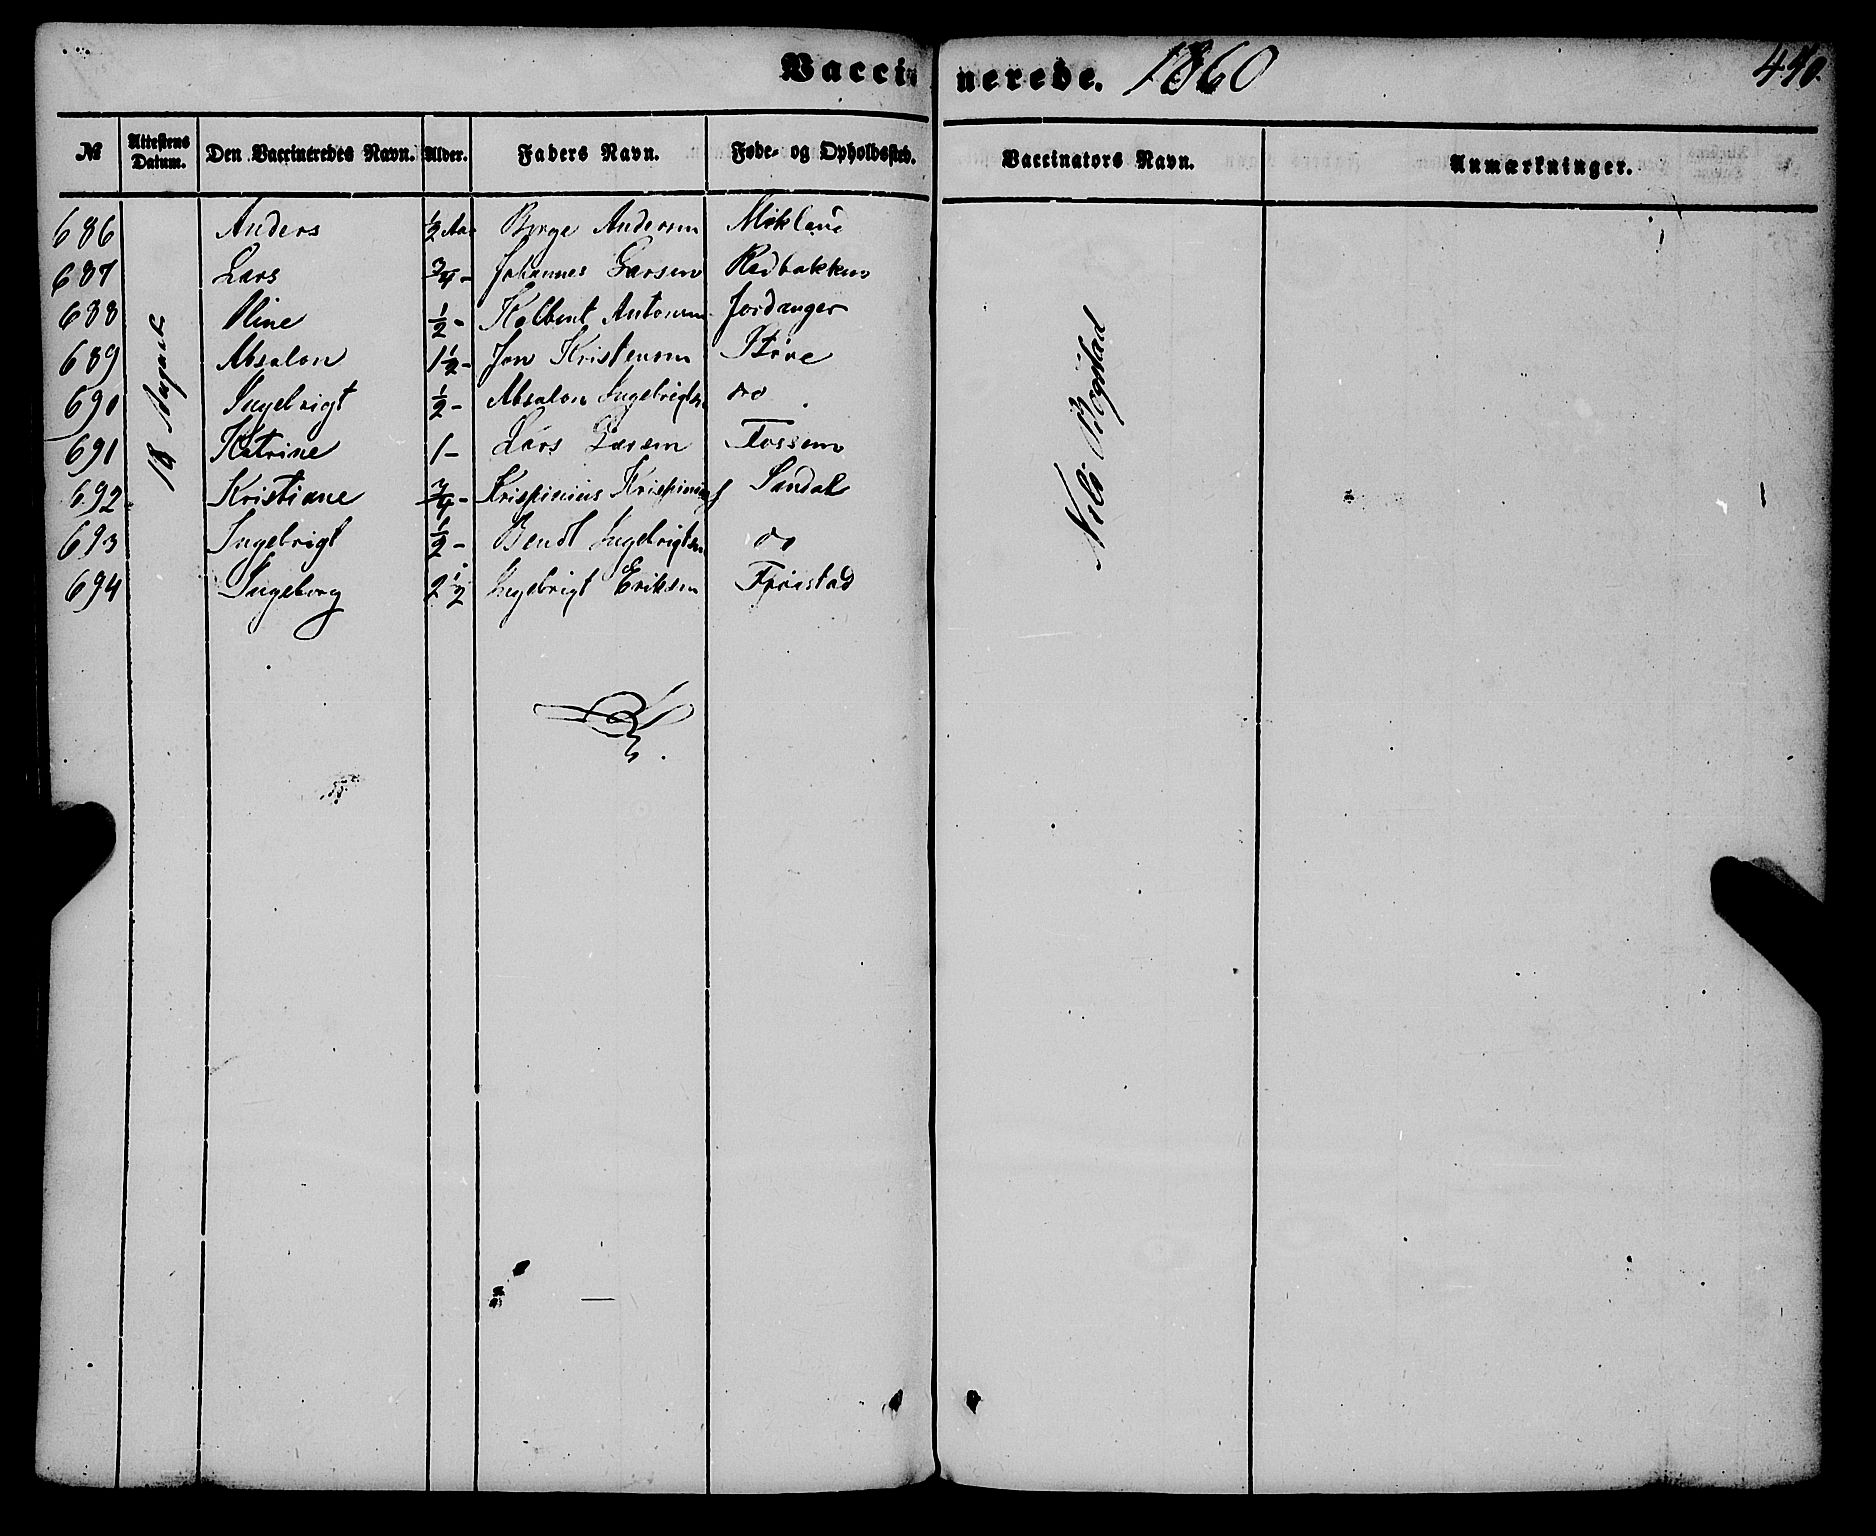 Vaccinerede. 1860
№ Attestens Datum. Den Vaccineredes Navn. Alder. Faders Navn. Føde- og Opholdssted. Vaccinators Navn. Anmærkninger.
18 August
Nils Bogstad
686 Anders ½ Aar Børge Andersen Mökland
687 Lars ¾ - Johannes Larsen Rødbakken
688 Oline ½ - Kolbent Antonsen Jordanger
689 Absalon 1½ - Jon Kristensen Støve
690 Ingebrigt ½ - Absalon Ingebrigtsen do
691 Katrine 1 - Lars Larsen Fossem
692 Kristiane ¾ - Krispinius Krispinius Sandal
693 Ingebrigt ½ - Bendt Ingebrigtsen do
694 Ingeborg 2½ Ingebrigt Eriksen